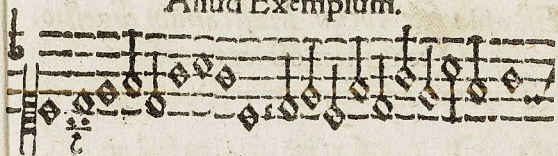 Aliud Exemplum.